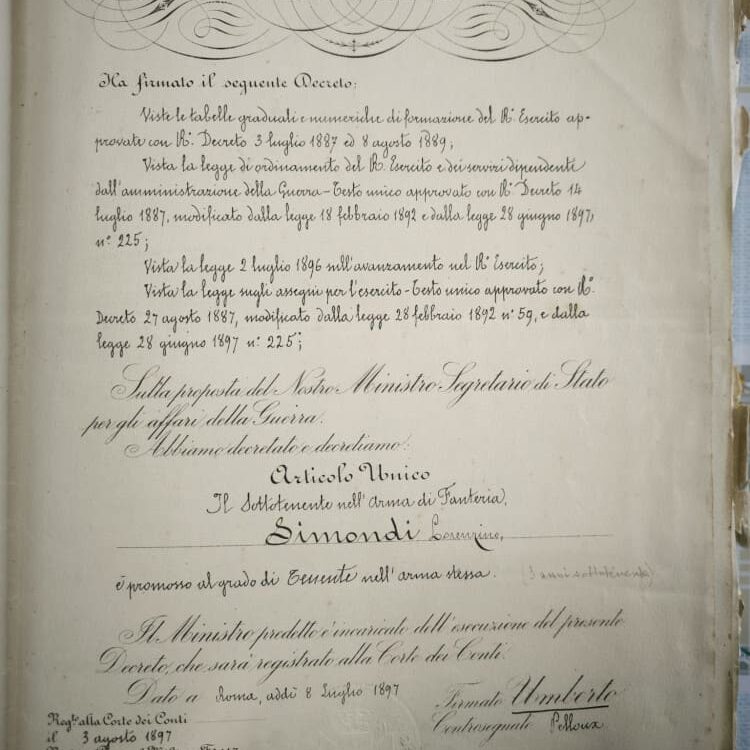 Ha firmato il seguente Decreto:
Viste le tabelle graduali e numeriche di formazione del R.º Esercito ap-
provate con R.º Decreto 3 luglio 1887 ed 8 agosto 1889;
Vista la legge di ordinamento del R. Esercito e dei servizi dipendenti
dall'amministrazione della Guerra - Testo unico approvato con R.º Decreto 14
luglio 1887, modificato dalla legge 18 febbraio 1892 e dalla legge 28 giugno 1897,
n.º 225;
Vista la legge 2 luglio 1896 sull'avanzamento nel R.º Esercito;
Vista la legge sugli assegni per l'esercito - Testo unico approvato con R.º
Decreto 27 agosto 1887, modificato dalla legge 28 febbraio 1892 n.º 59, e dalla
legge 28 giugno 1897 n.º 225;
Sulla proposta del Nostro Ministro Segretario di Stato
per gli affari della Guerra.
Abbiamo decretato e decretiamo:
Articolo Unico
Il Sottotenente nell'Arma di Fanteria,
Simondi Lorenzino,
è promosso al grado di Tenente nell'arma stessa. (3 anni sottotenente)
Il Ministro predetto è incaricato dell'esecuzione del presente
Decreto, che sarà registrato alla Corte dei Conti.
Dato a Roma, addì 8 Luglio 1897
Firmato Umberto
Controsegnato Pelloux
Reg.to alla Corte dei Conti
il 3 agosto 1897